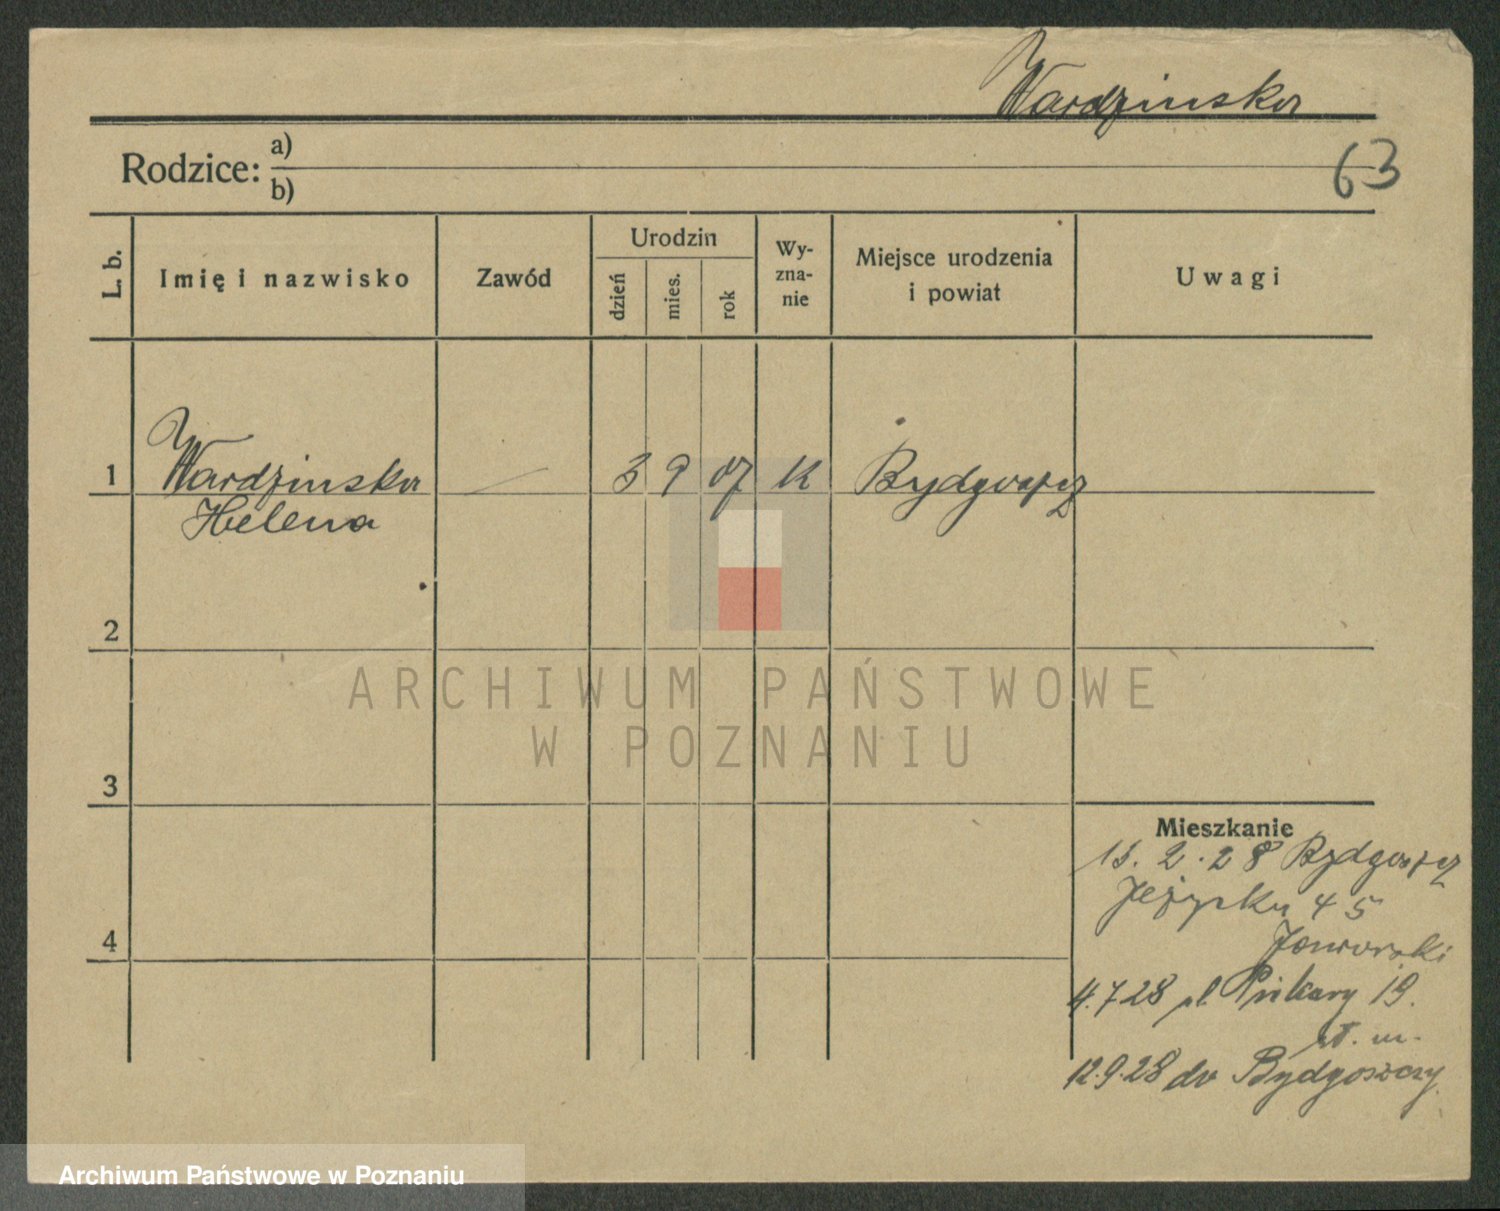 Wardzinska
63
Rodzice: a)
b)
L. b.
Imię i nazwisko
Zawód
Urodzin
dzień
mies.
rok
Wy-
zna-
nie
Miejsce urodzenia
i powiat
Uwagi
1 Wardzinska — 3 9 07 K Bydgoszcz
Helena
2
3
4
Mieszkanie
15. 2. 28 Bydgoszcz
45
Jaworski
4.7.28 pl. 19.
st. m.
12.9.28 do Bydgoszczy.
ARCHIWUM PAŃSTWOWE
W POZNANIU
Archiwum Państwowe w Poznaniu